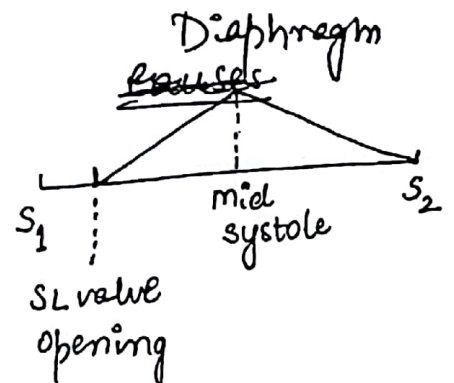 Diaphragm
Causes
S1
mid
systole
S2
SL valve
opening